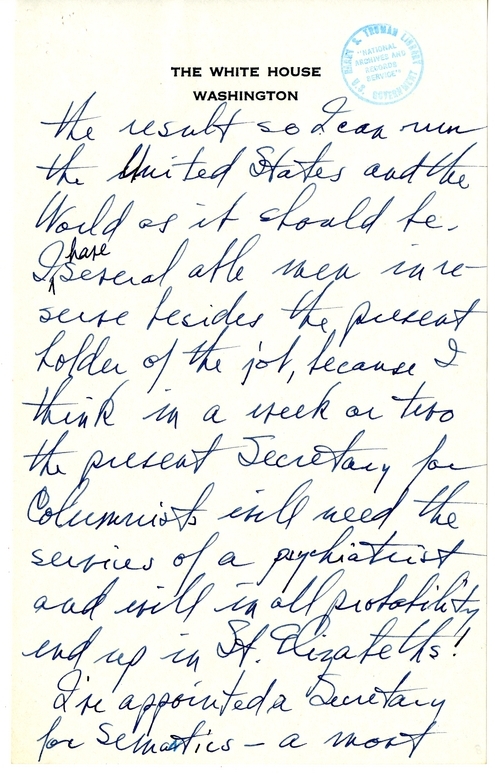 THE WHITE HOUSE
WASHINGTON
HARRY S. TRUMAN LIBRARY
"NATIONAL
ARCHIVES AND
RECORDS
SERVICE"
U. S. GOVERNMENT
the result so I can run
the United States and the
World as it should be.
I have several able men in re-
serve besides the present
holder of the job, because I
think in a week or two
the present Secretary for
Columnists will need the
services of a psychiatrist
and will in all probability
end up in St. Elizabeths!
I've appointed a Secretary
for Semantics – a most